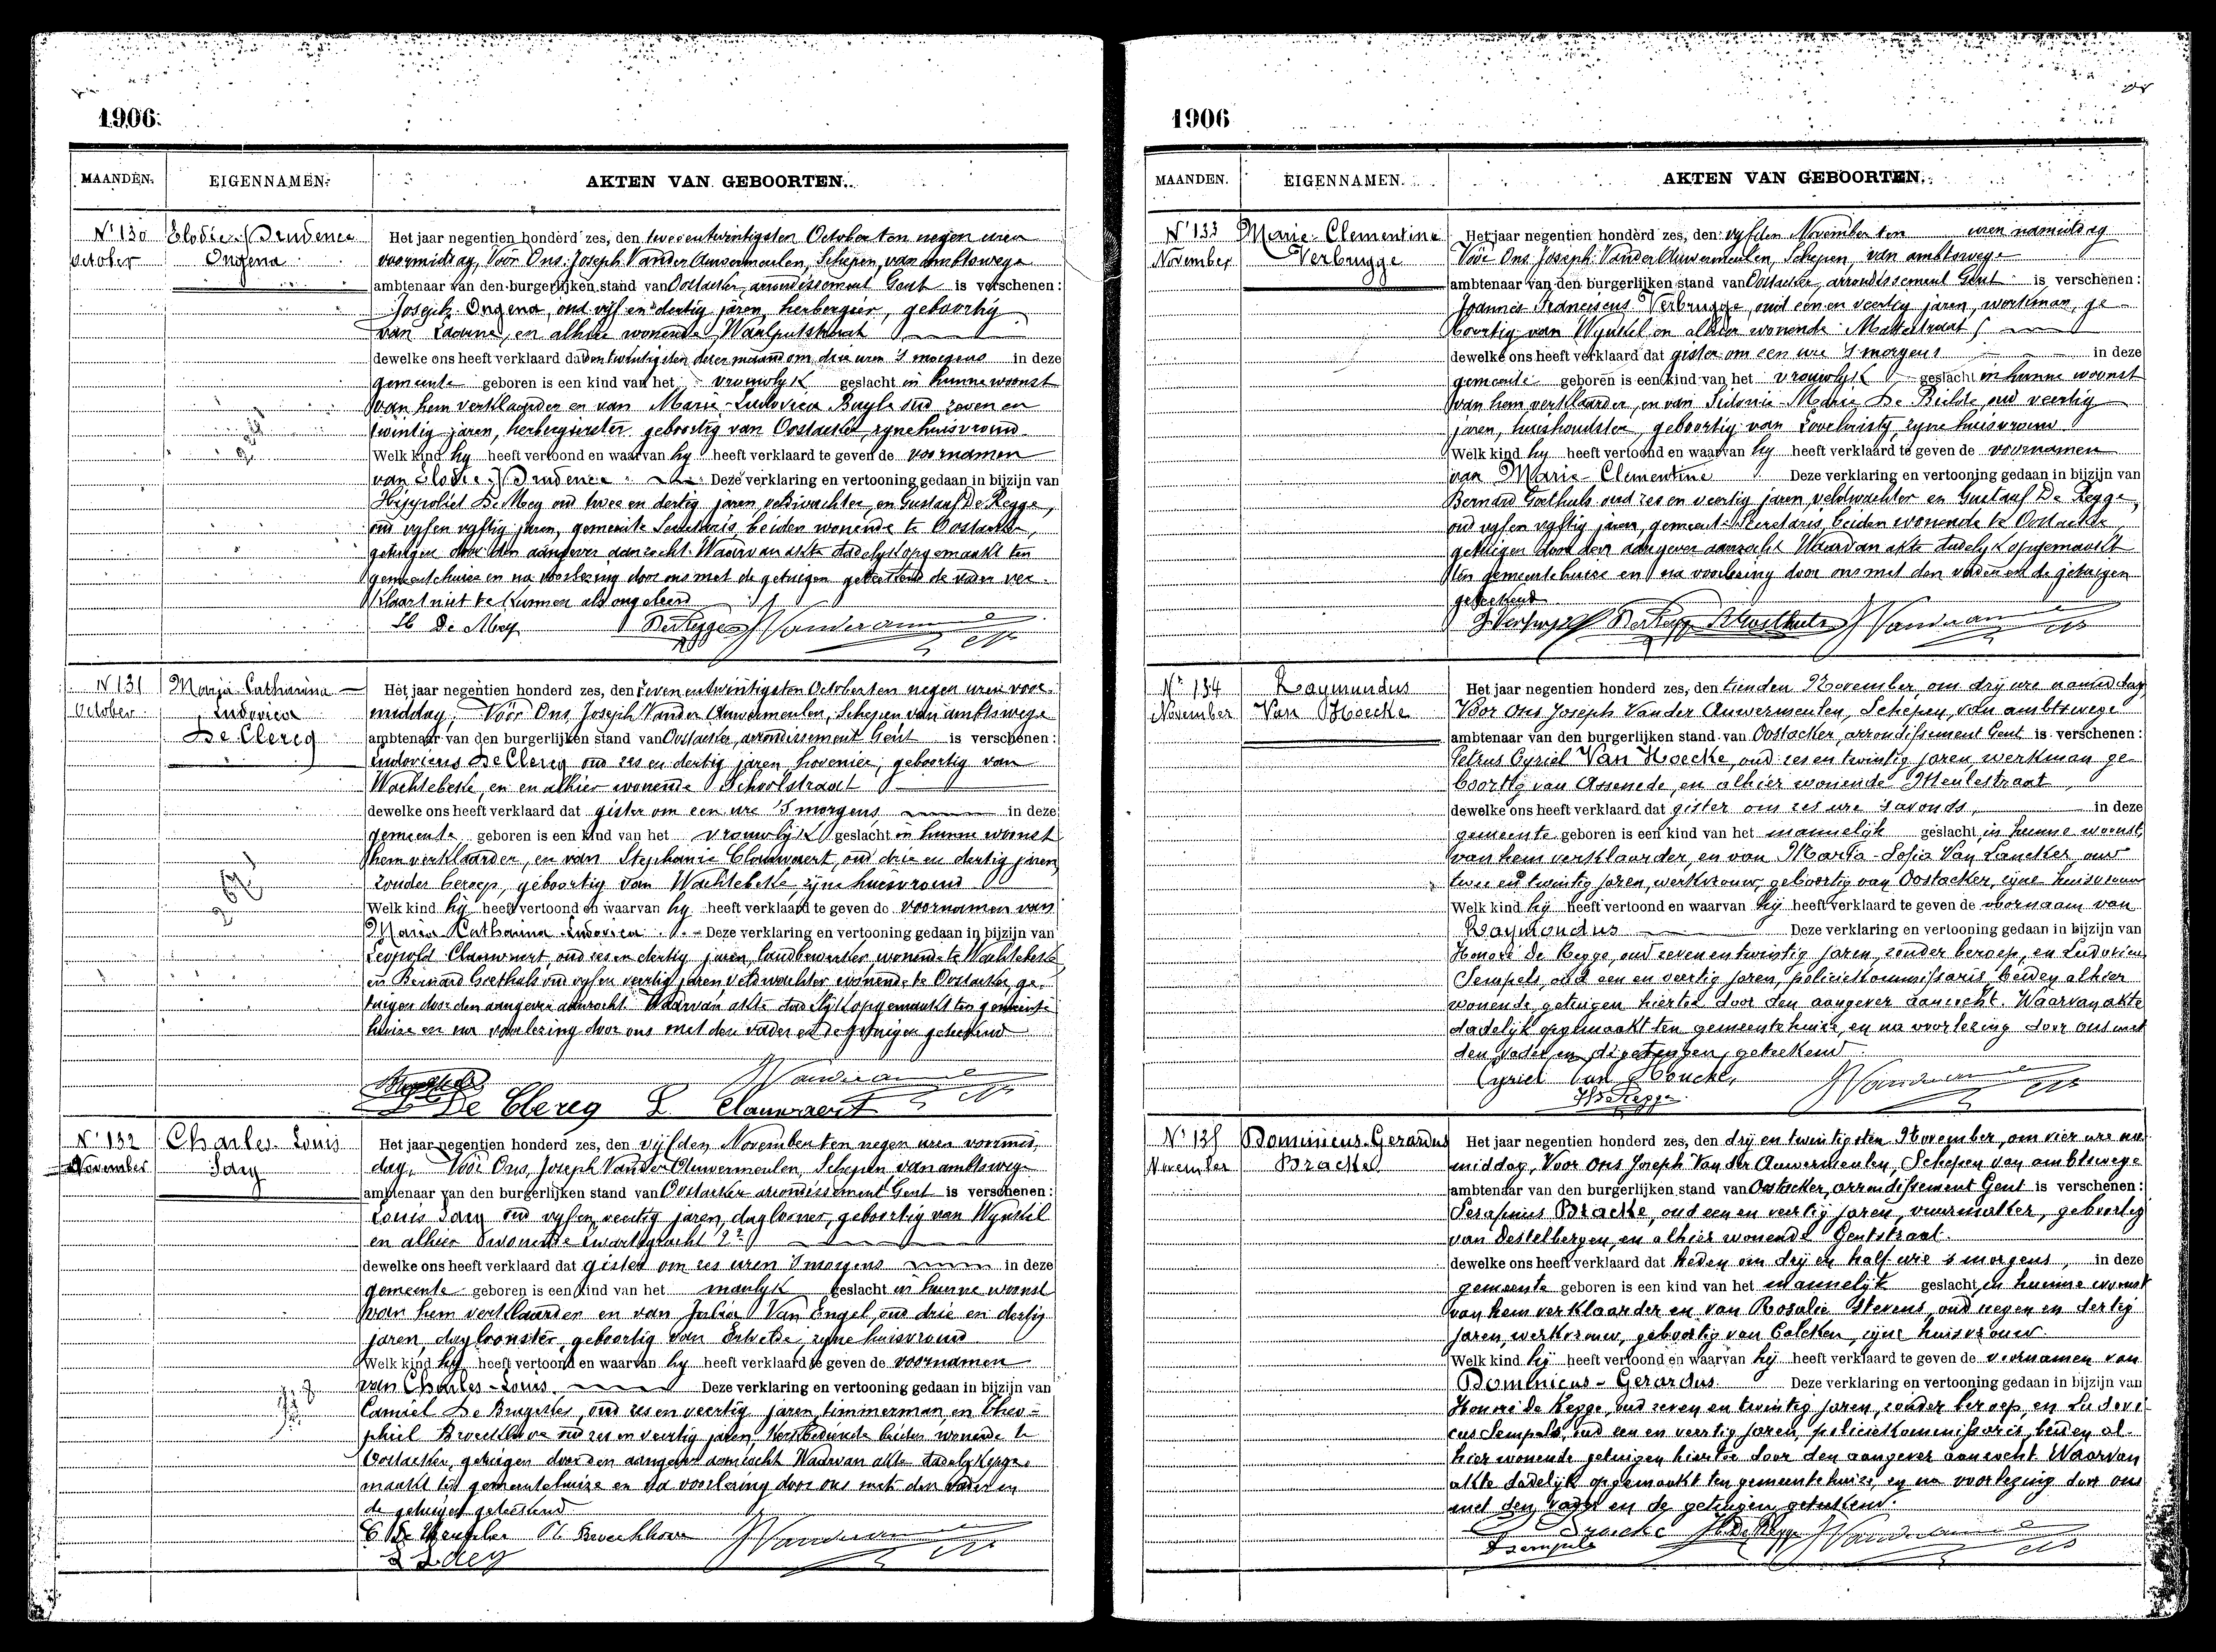 1906.
MAANDEN. EIGENNAMEN. AKTEN VAN GEBOORTEN.
N° 130
October
Elodie-Prudence
Ongena
Het jaar negentien honderd zes, den tweeentwintigsten October ten negen uren
voormiddag, Voor Ons Joseph Vander Auwermeulen, Schepen, van ambtswege
ambtenaar van den burgerlijken stand van Oostacker, arrondissement Gent is verschenen:
Joseph Ongena, oud vyf en dertig jaren, herbergier, geboortig
van Laerne, en alhier wonende Waalputstraat
dewelke ons heeft verklaard dat den twintigsten dezer maand om drie uren 's morgens in deze
gemeente geboren is een kind van het vrouwlyk geslacht in hunne woonst
van hem verklaarder en van Marie-Ludovica Buyle oud zeven en
twintig jaren, herbergierster geboortig van Oostacker, zyne huisvrouw
Welk kind hy heeft vertoond en waarvan hy heeft verklaard te geven de voornamen
van Elodie-Prudence Deze verklaring en vertooning gedaan in bijzijn van
Hippoliet De Mey oud twee en dertig jaren, veldwachter en Gustaaf De Regge,
oud vyf en vyftig jaren, gemeente Secretaris, beiden wonende te Oostacker,
getuigen door den aangever aanzocht. Waarvan akte dadelyk opgemaakt ten
gemeentehuize en na voorlezing door ons met de getuigen geteekend de vader ver-
klaart niet te kunnen als ongeleerd
H De Mey DeRegge J Vanderauwermeulen
N° 131
October
Maria Catharina
Ludovica
De Clercq
Het jaar negentien honderd zes, den zevenentwintigsten October ten negen uren voor-
middag, Voor Ons Joseph Vander Auwermeulen, Schepen van ambtswege
ambtenaar van den burgerlijken stand van Oostacker, arrondissement Gent is verschenen:
Ludovicus De Clercq oud zes en dertig jaren, hovenier, geboortig van
Wachtebeke, en en alhier wonende Schoolstraat
dewelke ons heeft verklaard dat gister om een ure 's morgens in deze
gemeente geboren is een kind van het vrouwlijk geslacht in hunne woonst
hem verklaarder, en van Stephanie Clauwaert, oud drie en dertig jaren,
zonder beroep, geboortig van Wachtebeke, zyne huisvrouw
Welk kind hij heeft vertoond en waarvan hy heeft verklaard te geven de voornamen van
Maria Catharina Ludovica Deze verklaring en vertooning gedaan in bijzijn van
Leopold Clauwaert oud zes en dertig jaren, landbewerker wonende te Wachtebeke
en Bernard Goethals oud vyf en veertig jaren, veldwachter wonende te Oostacker, ge-
tuigen door den aangever aanzocht. Waarvan akte dadelijk opgemaakt ten gemeente
huize en na voorlezing door ons met den vader en de getuigen geteekend
De Clercq L Clauwaert
N° 132
November
Charles-Louis
Say
Het jaar negentien honderd zes, den vijfden November ten negen uren voormid-
dag, Voor Ons, Joseph Vander Auwermeulen, Schepen van ambtswege
ambtenaar van den burgerlijken stand van Oostacker arrondissement Gent is verschenen:
Louis Say oud vyf en veertig jaren, dagloner, geboortig van Wynkel
en alhier wonende
dewelke ons heeft verklaard dat gister om zes uren 's morgens in deze
gemeente geboren is een kind van het manlyk geslacht in hunne woonst
van hem verklaarder en van Julia Van Engel, oud drie en dertig
jaren, dagloonster, geboortig van Ertvelde, zyne huisvrouw
Welk kind hy heeft vertoond en waarvan hy heeft verklaard te geven de voornamen
van Charles-Louis Deze verklaring en vertooning gedaan in bijzijn van
Camiel De oud zes en veertig jaren timmerman, en Theo-
phiel Broeckhove oud zes en veertig jaren, beiden wonende te
Oostacker, getuigen door den aangever aanzocht Waarvan akte dadelyk opge-
maakt ten gemeentehuize en na voorlezing door ons met den vader en
de getuigen geteekend
Th Broeckhove
1906
MAANDEN. EIGENNAMEN. AKTEN VAN GEBOORTEN.
N° 133
November
Marie-Clementine
Verbrugge
Het jaar negentien honderd zes, den vyfden November ten uren namiddag
Voor Ons Joseph Vander Auwermeulen, Schepen, van ambtswege
ambtenaar van den burgerlijken stand van Oostacker, arrondissement Gent is verschenen:
Joannes Franciscus Verbrugge, oud een en veertig jaren, workman, ge-
boortig van Wynkel en alhier wonende
dewelke ons heeft verklaard dat gister om een ure 's morgens in deze
gemeente geboren is een kind van het vrouwlyk geslacht in hunne woonst
van hem verklaarder, en van Sidonie-Marie De Bielde, oud veertig
jaren, huishoudster, geboortig van Loochristy, zyne huisvrouw
Welk kind hy heeft vertoond en waarvan hy heeft verklaard te geven de voornamen
van Marie-Clementine Deze verklaring en vertooning gedaan in bijzijn van
Bernard Goethals oud zes en veertig jaren, veldwachter en Gustaaf De Regge,
oud vyf en vyftig jaren, gemeente-Secretaris, beiden wonende te Oostacker,
getuigen door den aangever aanzocht Waarvan akte dadelyk opgemaakt
ten gemeentehuize en na voorlezing door ons met den vader en de getuigen
geteekend
N° 134
November
Raymundus
Van Hoecke
Het jaar negentien honderd zes, den tienden November, om drij ure namiddag
Voor Ons Joseph Van der Auwermeulen, Schepen, van ambtswege
ambtenaar van den burgerlijken stand van Oostacker, arrondissement Gent is verschenen:
Petrus Cyriel Van Hoecke, oud zes en twintig jaren, werkman ge-
boortig van Assenede, en alhier wonende Meulestraat
dewelke ons heeft verklaard dat gister om zes ure 's avonds, in deze
gemeente geboren is een kind van het mannelijk geslacht, in hunne woonst,
van hem verklaarder, en van Maria-Sofia Van Lancker, oud
twee en twintig jaren, werkvrouw, geboortig van Oostacker, zijne huisvrouw
Welk kind hij heeft vertoond en waarvan hij heeft verklaard te geven de voornaam van
Raymondus Deze verklaring en vertooning gedaan in bijzijn van
Honoré De Regge, oud zeven en twintig jaren, zonder beroep, en Ludovicus
Sempels, oud een en veertig jaren, policiekommissaris, beiden alhier
wonende, getuigen hiertoe door den aangever aanzocht. Waarvan akte
dadelijk opgemaakt ten gemeentehuize, en na voorlezing door ons met
den vader en de getuigen, geteekend.
Cyriel Van Houcke,
H De Regge
N° 135
November
Dominicus-Gerardus
Bracke
Het jaar negentien honderd zes, den drij en twintigsten November, om vier ure na-
middag, Voor Ons Joseph Van der Auwermeulen, Schepen van ambtswege
ambtenaar van den burgerlijken stand van Oostacker, arrondissement Gent is verschenen:
Serafinus Bracke, oud een en veertig jaren, vuurmaker, geboortig
van Destelbergen, en alhier wonende Gentstraat.
dewelke ons heeft verklaard dat heden om drij en half ure 's morgens, in deze
gemeente geboren is een kind van het mannelijk geslacht, in hunne woonst
van hem verklaarder en van Rosalie Stevens, oud negen en dertig
jaren, werkvrouw, geboortig van Calcken, zijne huisvrouw.
Welk kind hij heeft vertoond en waarvan hij heeft verklaard te geven de voornamen van
Dominicus-Gerardus Deze verklaring en vertooning gedaan in bijzijn van
Honoré De Regge, oud zeven en twintig jaren, zonder beroep, en Ludovi-
cus Sempels, oud een en veertig jaren, policiekommissaris, beiden al-
hier wonende getuigen hiertoe door den aangever aanzocht. Waarvan
akte dadelijk opgemaakt ten gemeentehuize, en na voorlezing door ons
met den vader en de getuigen, geteekend.
S Bracke H De Regge
Sempels